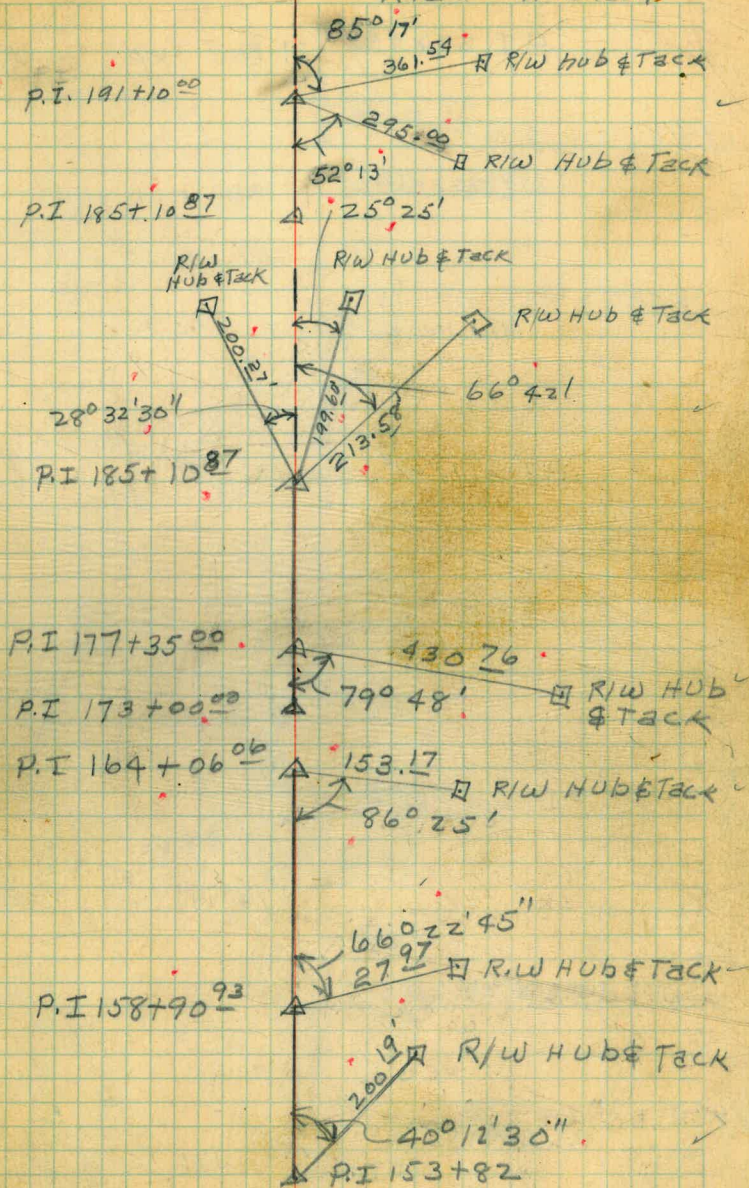 85° 17'
361.54
R/W hub & Tack
P.I. 191+10 00
295.00
R/W Hub & Tack
52° 13'
P.I 185+10 87
25° 25'
R/W
Hub & Tack
R/W Hub & Tack
R/W Hub & Tack
200.27'
199.60
213.58'
66° 42'
28° 32' 30"
P.I 185+10 87
P.I 177+35 00
430 76
R/W HUB
& Tack
79° 48'
P.I 173+00 00
P.I 164+06 06
153.17
R/W HUb & Tack
86° 25'
66° 22' 45"
27 97
R.W HUb & Tack
P.I 158+90 93
200 19'
R/W HUb & Tack
40° 12' 30"
P.I 153+82